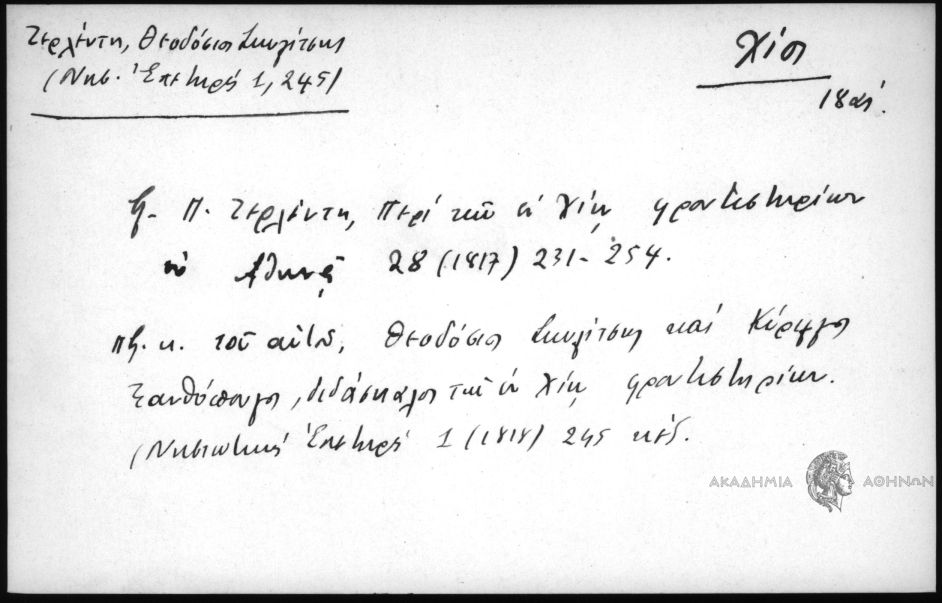 Ζερλέντη, Θεοδόσιος Σκυλίτσης
(Νησ. Ἐπετηρὶς 1, 245)
Χίος
18 αἰ.
Π. Ζερλέντη, Περὶ τῶν ἐν Χίῳ φροντιστηρίων
ἐν Ἀθηνᾷ 28 (1817) 231-254.
πβ. κ. τοῦ αὐτοῦ, Θεοδόσιος Σκυλίτσης καὶ Κύριλλος
Ξανθόπουλος, διδάσκαλοι τῶν ἐν Χίῳ φροντιστηρίων.
(Νησιωτικὴ Ἐπετηρὶς 1 (1818) 245 κἑξ.
ΑΚΑΔΗΜΙΑ ΑΘΗΝΩΝ